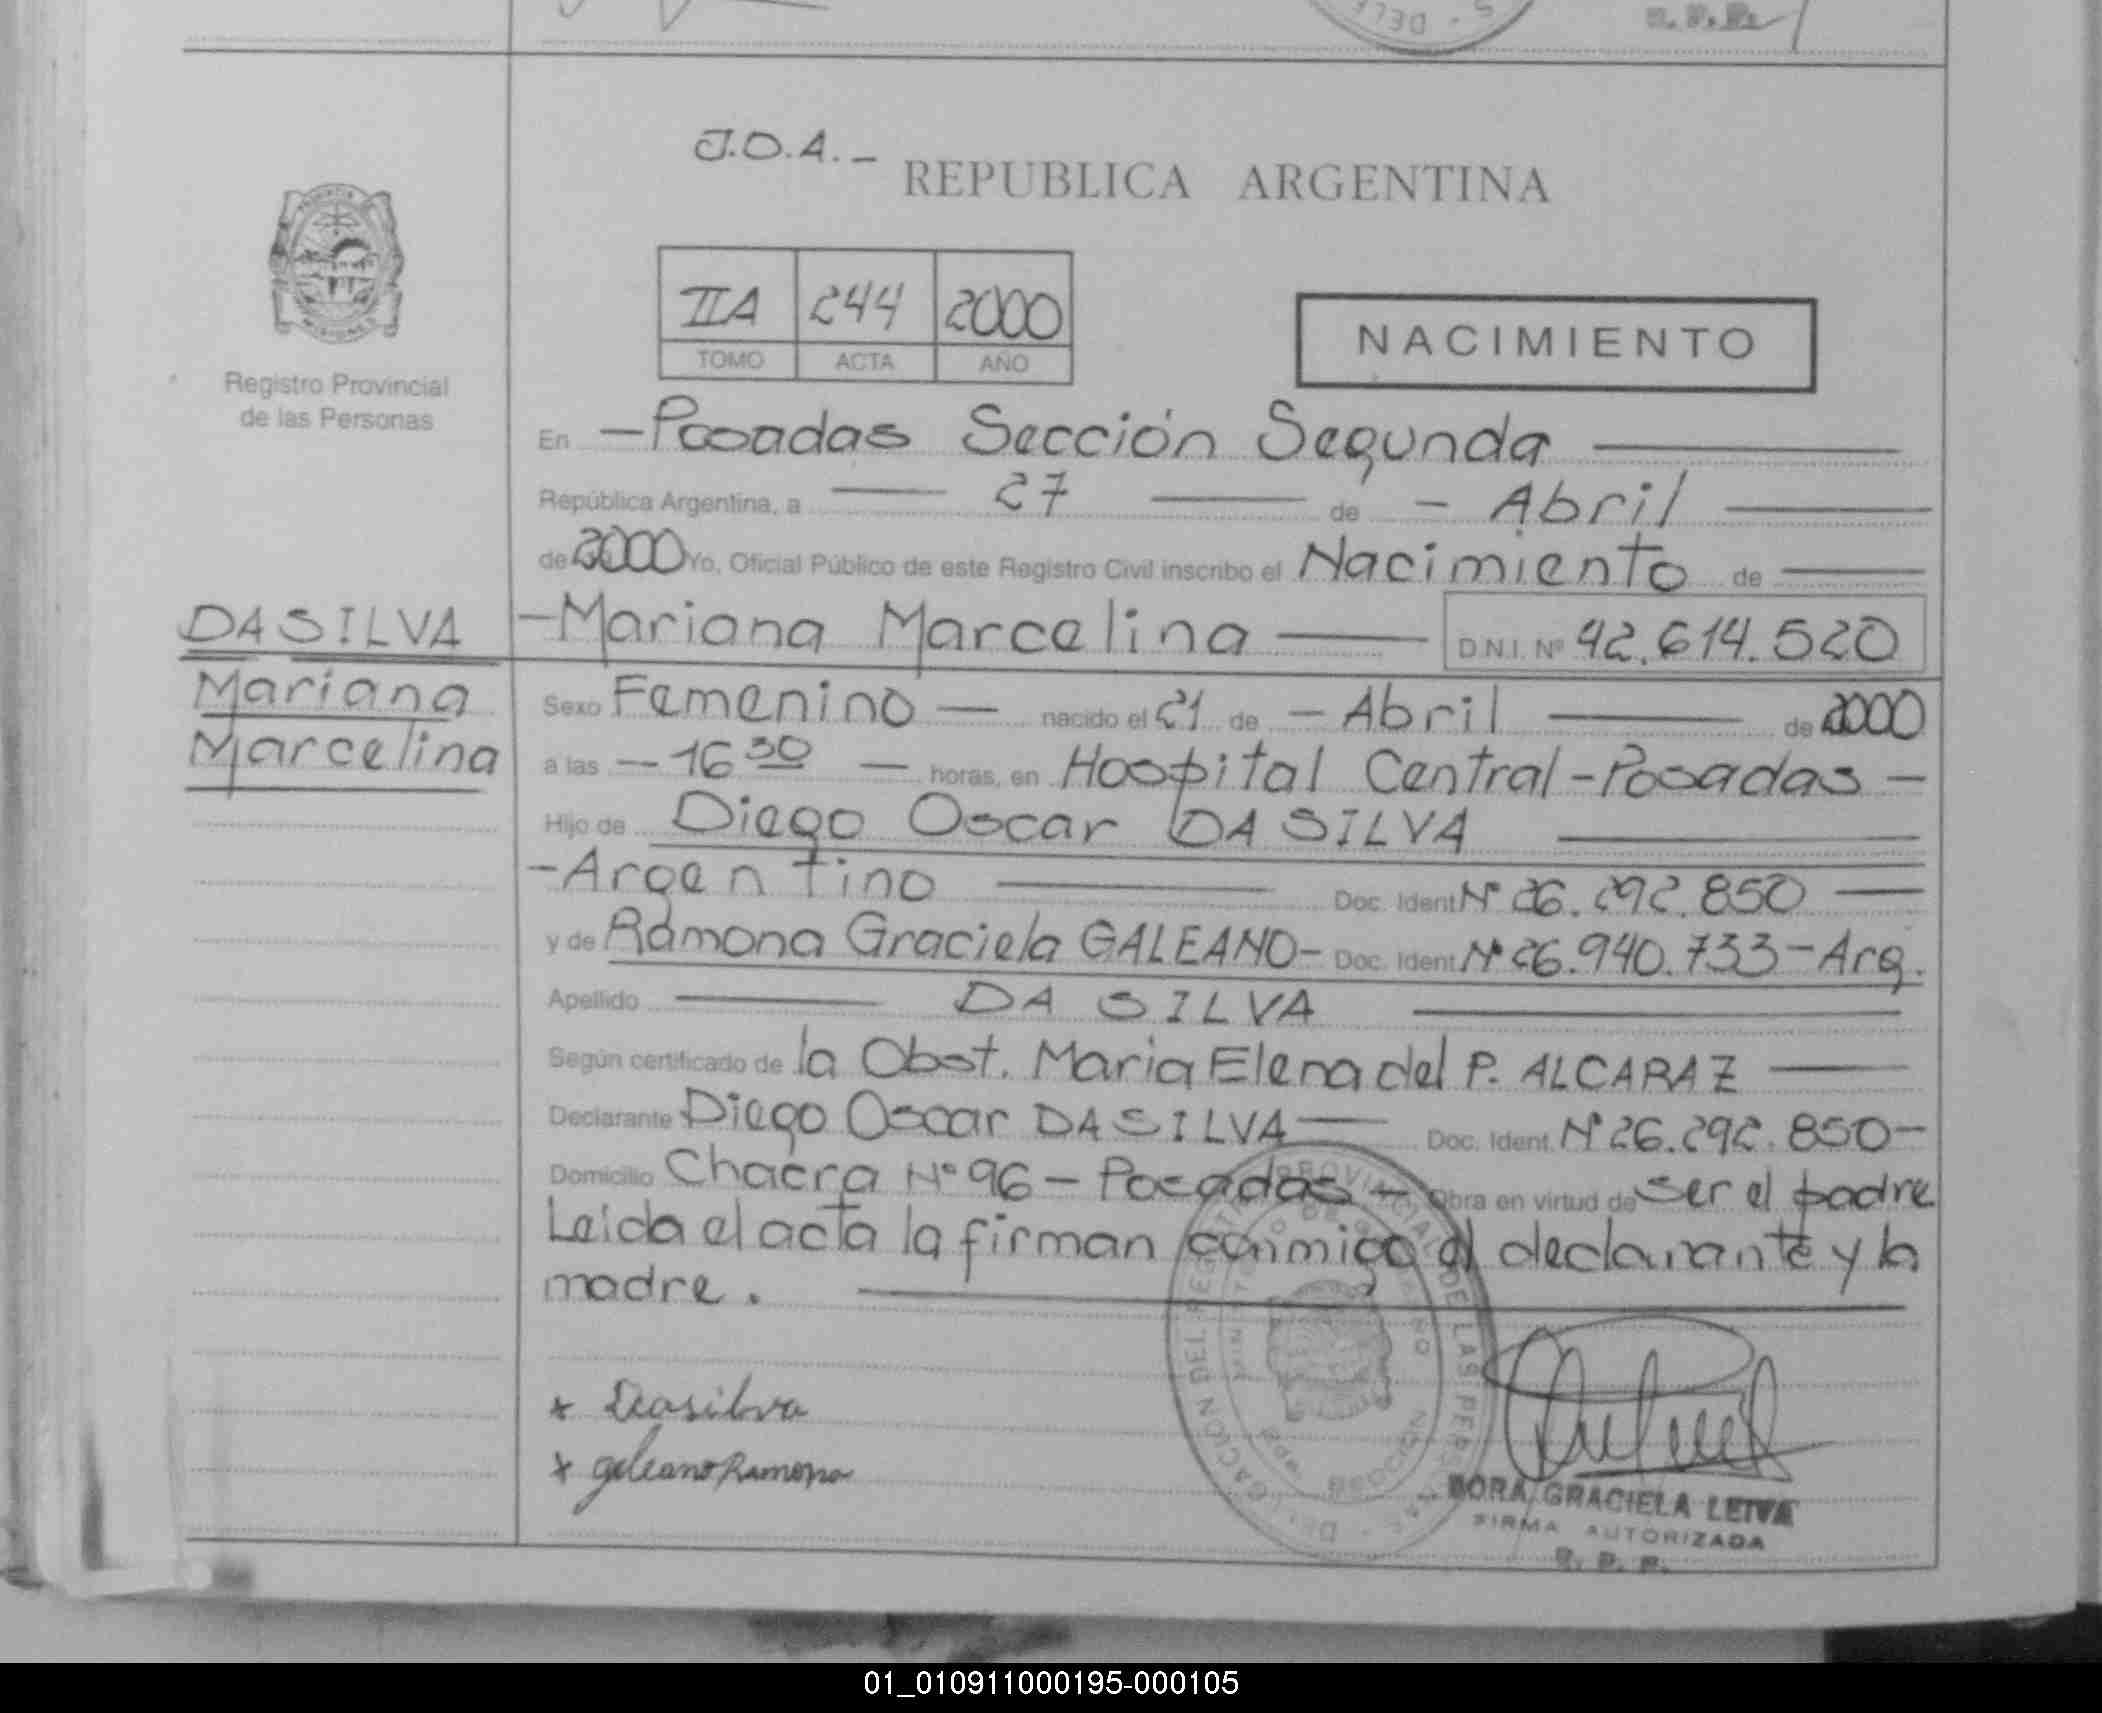 J.O.A.-
REPUBLICA ARGENTINA
IIA 244 2000
TOMO ACTA AÑO
NACIMIENTO
Registro Provincial
de las Personas
En -Posadas Sección Segunda
República Argentina, a 27 de - Abril
de 2000 Yo, Oficial Público de este Registro Civil inscribo el Nacimiento de
DA SILVA
Mariana
Marcelina
-Mariana Marcelina D.N.I. Nº 42.614.520
Sexo Femenino - nacido el 21 de - Abril de 2000
a las - 16 30 - horas, en Hospital Central - Posadas -
Hijo de Diego Oscar DA SILVA
-Argentino Doc. Ident. Nº 26.292.850
y de Ramona Graciela GALEANO - Doc. Ident. Nº 26.940.733 - Arg.
Apellido DA SILVA
Según certificado de la Obst. Maria Elena del P. ALCARAZ
Declarante Diego Oscar DA SILVA Doc. Ident. Nº 26.292.850-
Domicilio Chacra Nº 96 - Posadas - Obra en virtud de ser el padre
Leida el acta la firman conmigo el declarante y la
madre.
x Dasilva
x galeano Ramona
GRACIELA LEIVA
FIRMA AUTORIZADA
R. P. P.
01_010911000195-000105